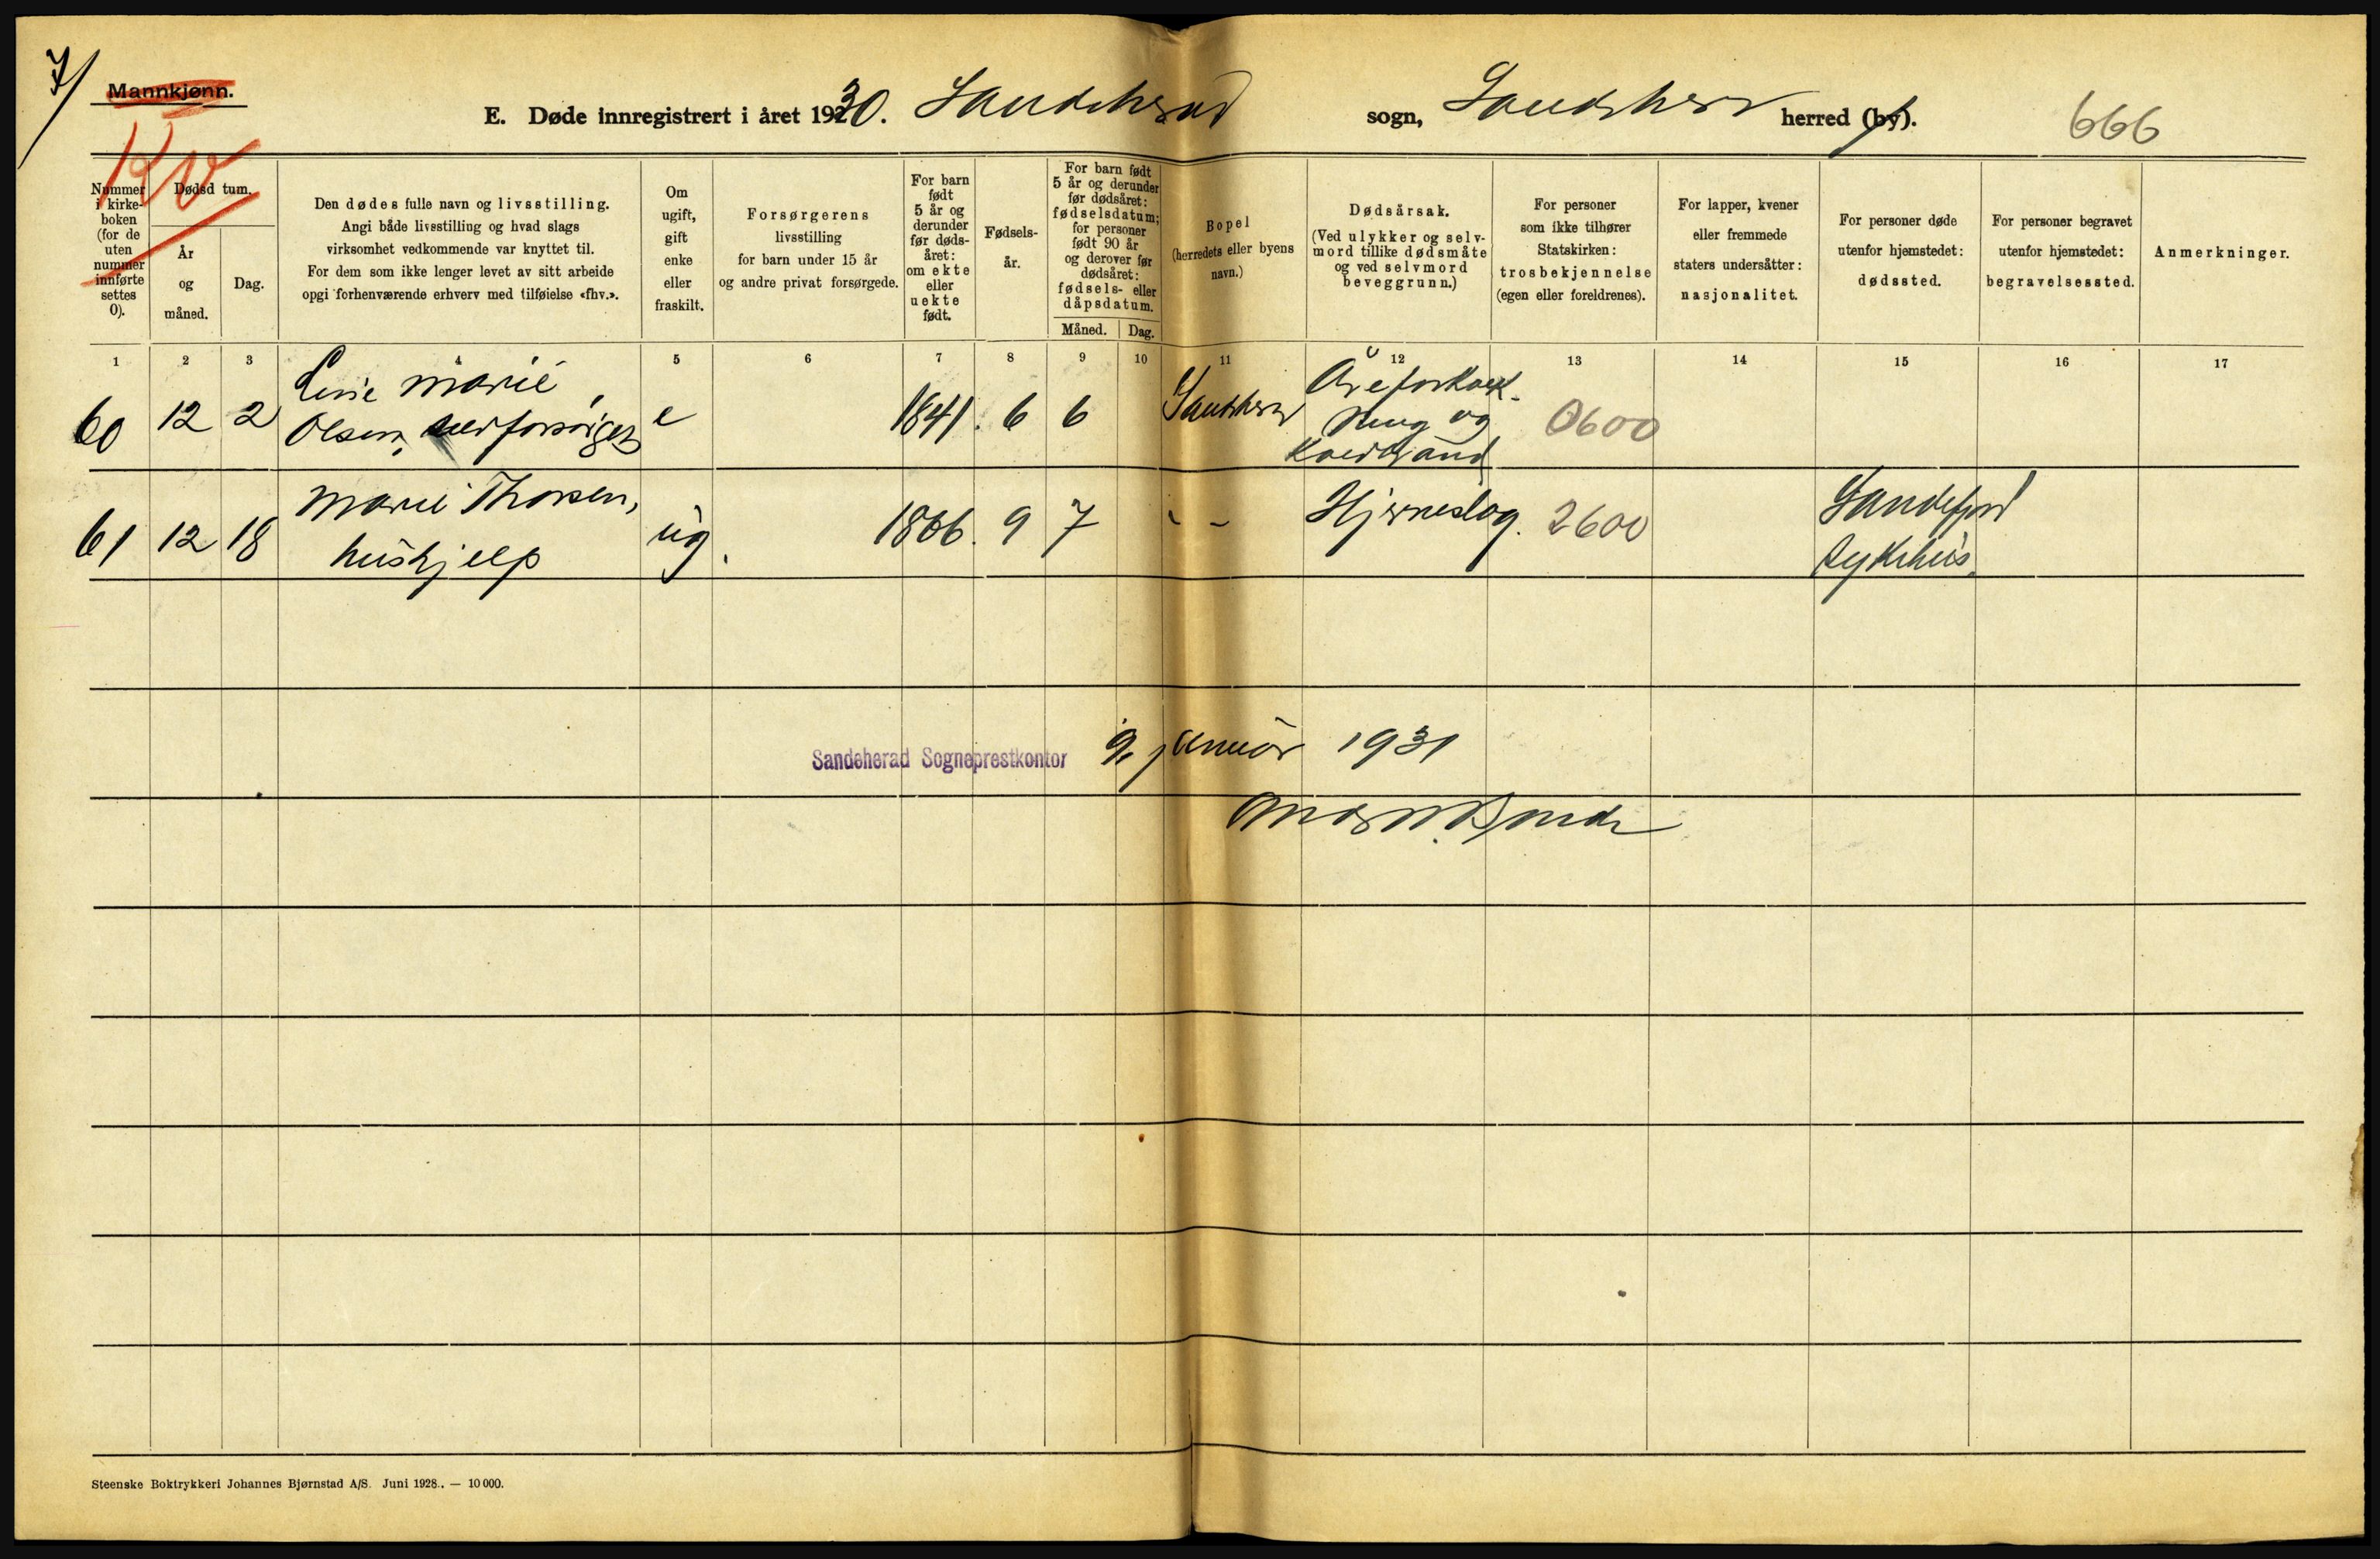 7/
Mannkjønn.
Kv
E. Døde innregistrert i året 1930. Sandeherad sogn, Sandeherr herred (by). 666
Nummer i kirke- boken (for de uten nummer innførte settes 0).
Dødsd tum.
År og måned.
Dag.
Den dødes fulle navn og livsstilling.
Angi både livsstilling og hvad slags
virksomhet vedkommende var knyttet til.
For dem som ikke lenger levet av sitt arbeide
opgi forhenværende erhverv med tilføielse «fhv.».
Om ugift, gift enke eller fraskilt.
Forsørgerens
livsstilling
for barn under 15 år
og andre privat forsørgede.
For barn født 5 år og derunder før døds- året: om ekte eller uekte født.
Fødsels- år.
For barn født 5 år og derunder før dødsåret: fødselsdatum; for personer født 90 år og derover før dødsåret: fødsels- eller dåpsdatum.
Måned. Dag.
Bopel
(herredets eller byens
navn.)
Dødsårsak.
(Ved ulykker og selv-
mord tillike dødsmåte
og ved selvmord
beveggrunn.)
For personer
som ikke tilhører
Statskirken:
trosbekjennelse
(egen eller foreldrenes).
For lapper, kvener
eller fremmede
staters undersåtter:
nasjonalitet.
For personer døde
utenfor hjemstedet:
dødssted.
For personer begravet
utenfor hjemstedet:
begravelsessted.
Anmerkninger.
1 2 3 4 5 6 7 8 9 10 11 12 13 14 15 16 17
Line Marie Åreforkalk-
60 12 2 Olsen, selvforsørget e 1841. 6 6 Sandeherr ning og 0600
Koldbrand
Marie Thorsen, Sandefjord
61 12 18 hushjelp ug. 1866. 9 7 " - Hjerneslag. 2600 Sykehus.
Sandeherad Sogneprestkontor 9. januar 1931
Steenske Boktrykkeri Johannes Bjørnstad A/S. Juni 1928.. — 10 000.